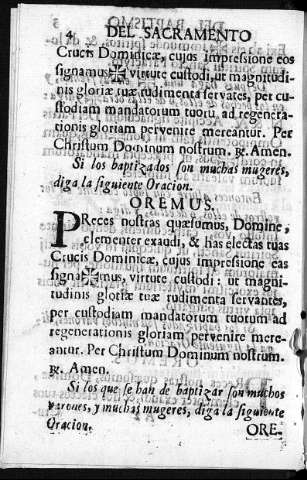 4 DEL SACRAMENTO
Crucis Dominicæ, cujus impresione eos
signamus ✠ virtute custodi, ut magnitudi-
nis gloriæ tuæ rudimenta servātes, per cu-
stodiam mandatorum tuorū, ad regenera-
tionis gloriam pervenire mereantur. Per
Christum Dominum nostrum. ℟. Amen.
Si los baptizados son muchas mugeres,
diga la siguiente Oracion.
OREMUS.
PReces nostras quæsumus, Domine,
clementer exaudi, & has electas tuas
Crucis Dominicæ, cujus impresione eas
signamus, virtute custodi: ut magni-
tudinis gloriæ tuæ rudimenta servantes,
per custodiam mandatorum tuorum ad
regenerationis gloriam pervenire mere-
antur. Per Christum Dominum nostrum.
℟. Amen.
Si los que se han de baptizar son muchos
varones, y muchas mugeres, diga la siguiente
Oracion. ORE-